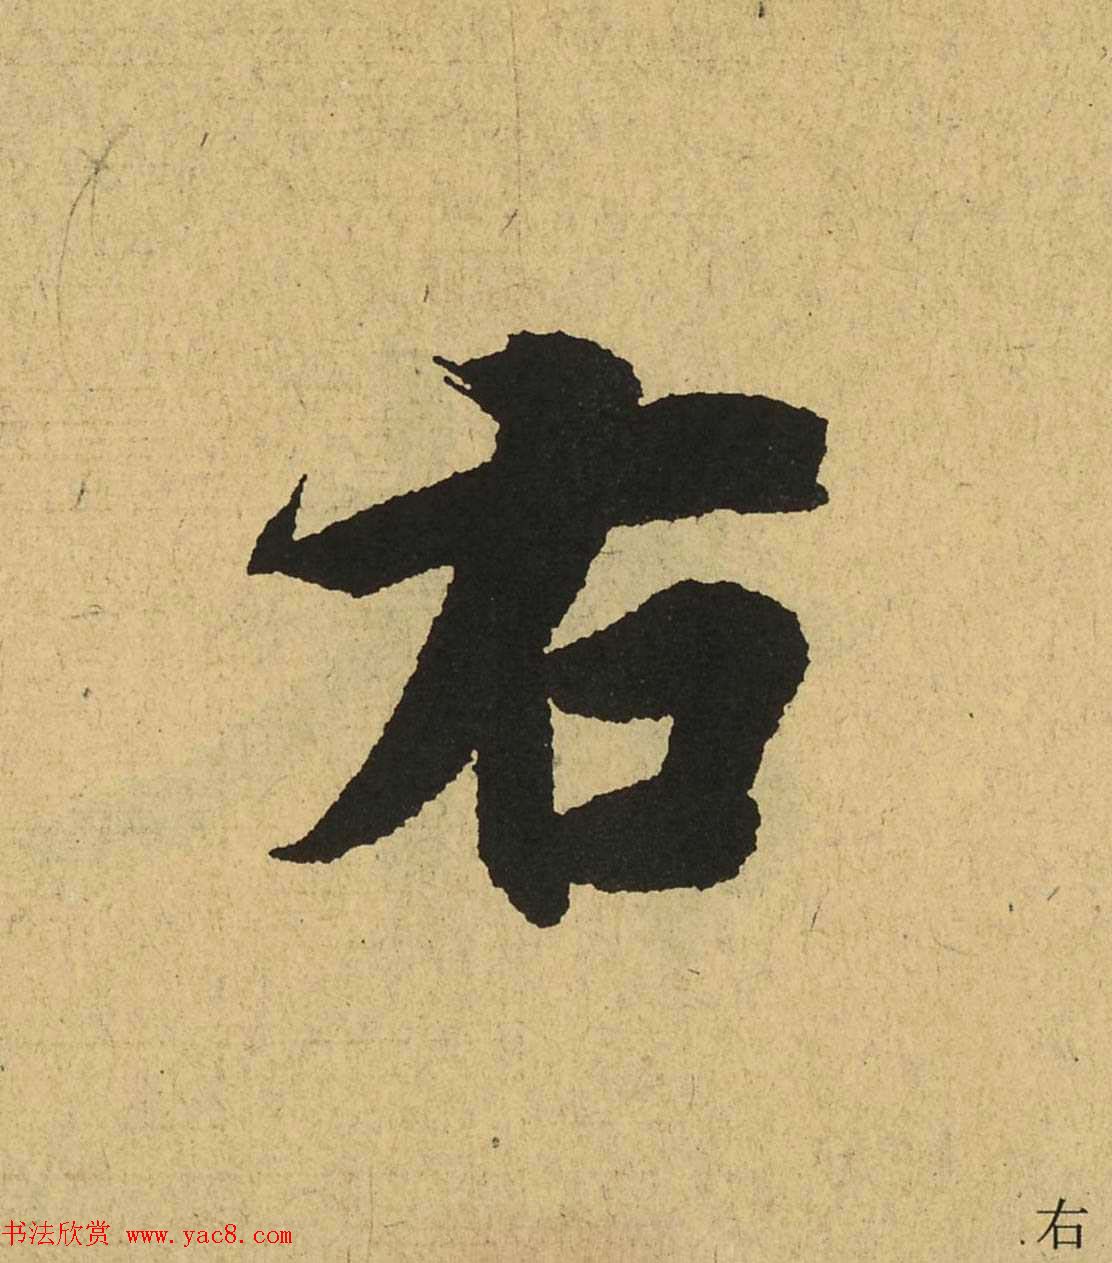 右
书法欣赏 www.yac8.com
右